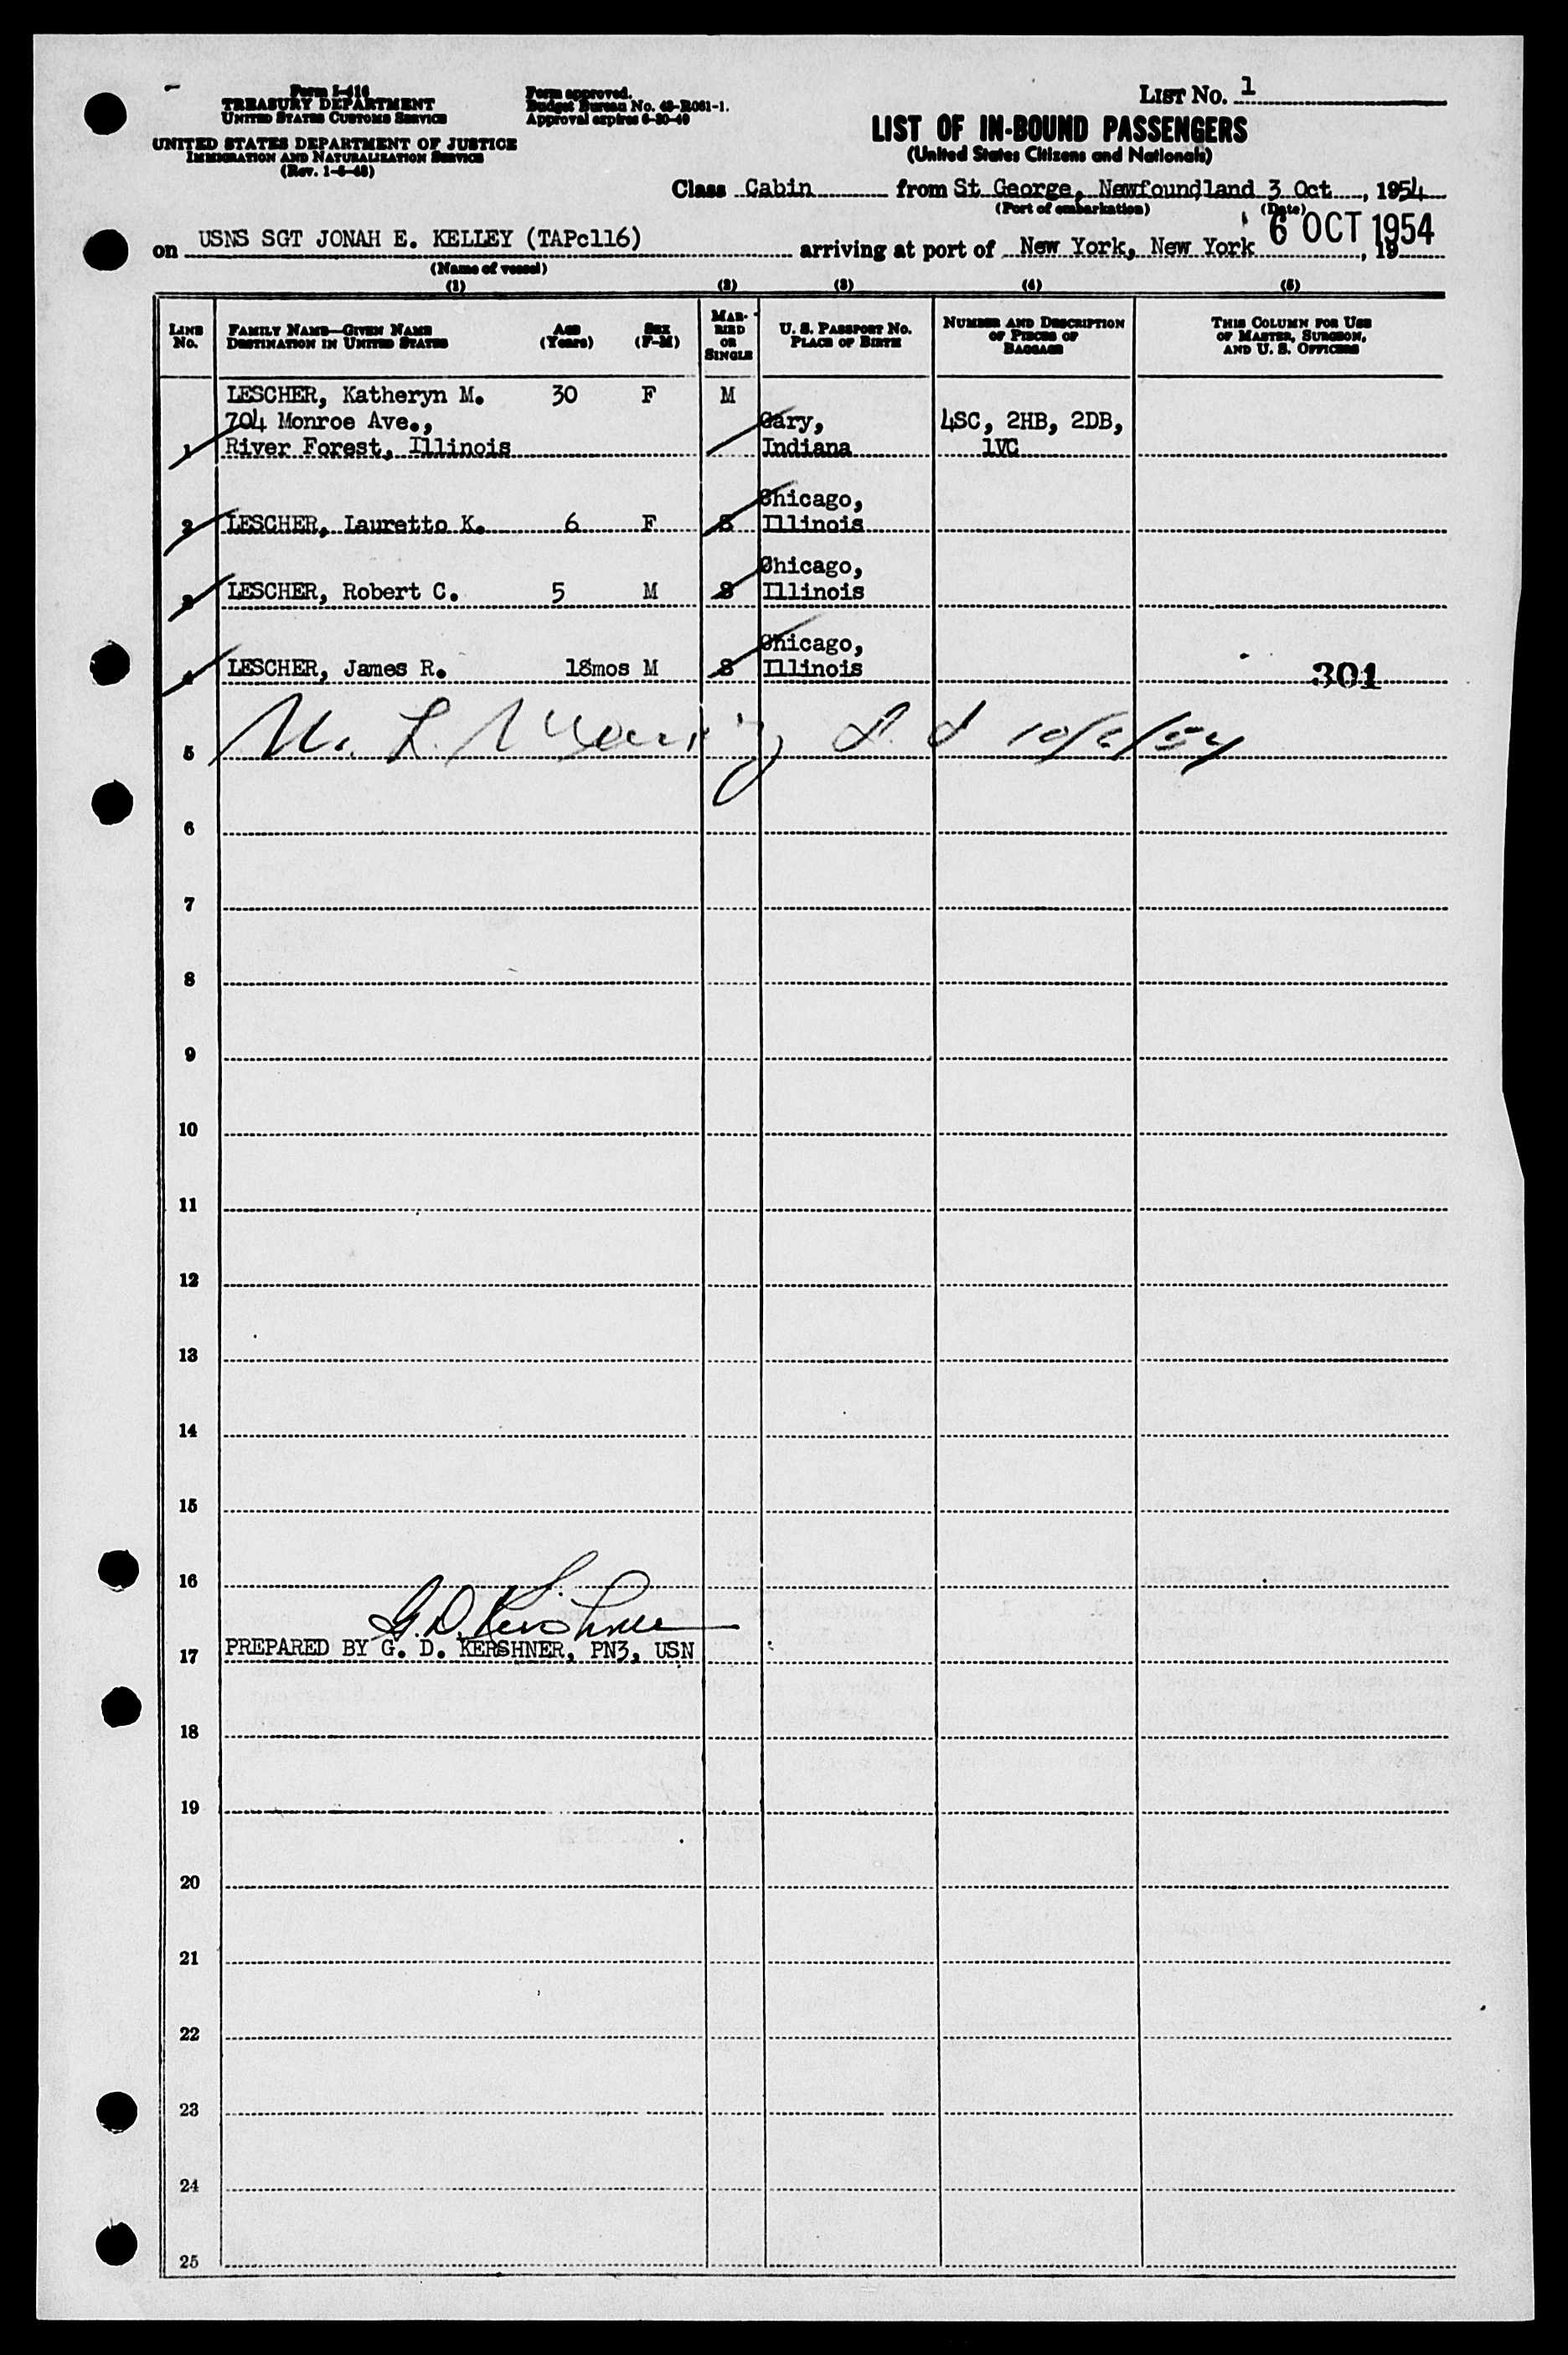 Form I-416
TREASURY DEPARTMENT
UNITED STATES CUSTOMS SERVICE
UNITED STATES DEPARTMENT OF JUSTICE
IMMIGRATION AND NATURALIZATION SERVICE
(Rev. 1-6-48)
Form approved.
Budget Bureau No. 43-R061-1.
Approval expires 6-30-49
LIST No. 1
LIST OF IN-BOUND PASSENGERS
(United States Citizens and Nationals)
Class Cabin from St George, Newfoundland 3 Oct, 1954
(Port of embarkation) (Date)
on USNS SGT JONAH E. KELLEY (TAPc116) arriving at port of New York, New York 6 OCT 1954, 19
(Name of vessel)
(1) (2) (3) (4) (5)
LINE No.
FAMILY NAME—GIVEN NAME
DESTINATION IN UNITED STATES
AGE (Years)
SEX (F-M)
MARRIED OR SINGLE
U. S. PASSPORT NO.
PLACE OF BIRTH
NUMBER AND DESCRIPTION
OF PIECES OF
BAGGAGE
THIS COLUMN FOR USE
OF MASTER, SURGEON,
AND U. S. OFFICERS
LESCHER, Katheryn M. 30 F M
704 Monroe Ave., Gary, 4SC, 2HB, 2DB,
1 River Forest, Illinois Indiana 1VC
Chicago,
2 LESCHER, Lauretto K. 6 F S Illinois
Chicago,
3 LESCHER, Robert C. 5 M S Illinois
Chicago,
4 LESCHER, James R. 18mos M S Illinois 301
5 10/6/54
6
7
8
9
10
11
12
13
14
15
16
G. D. Kershner
17 PREPARED BY G. D. KERSHNER, PN3, USN
18
19
20
21
22
23
24
25